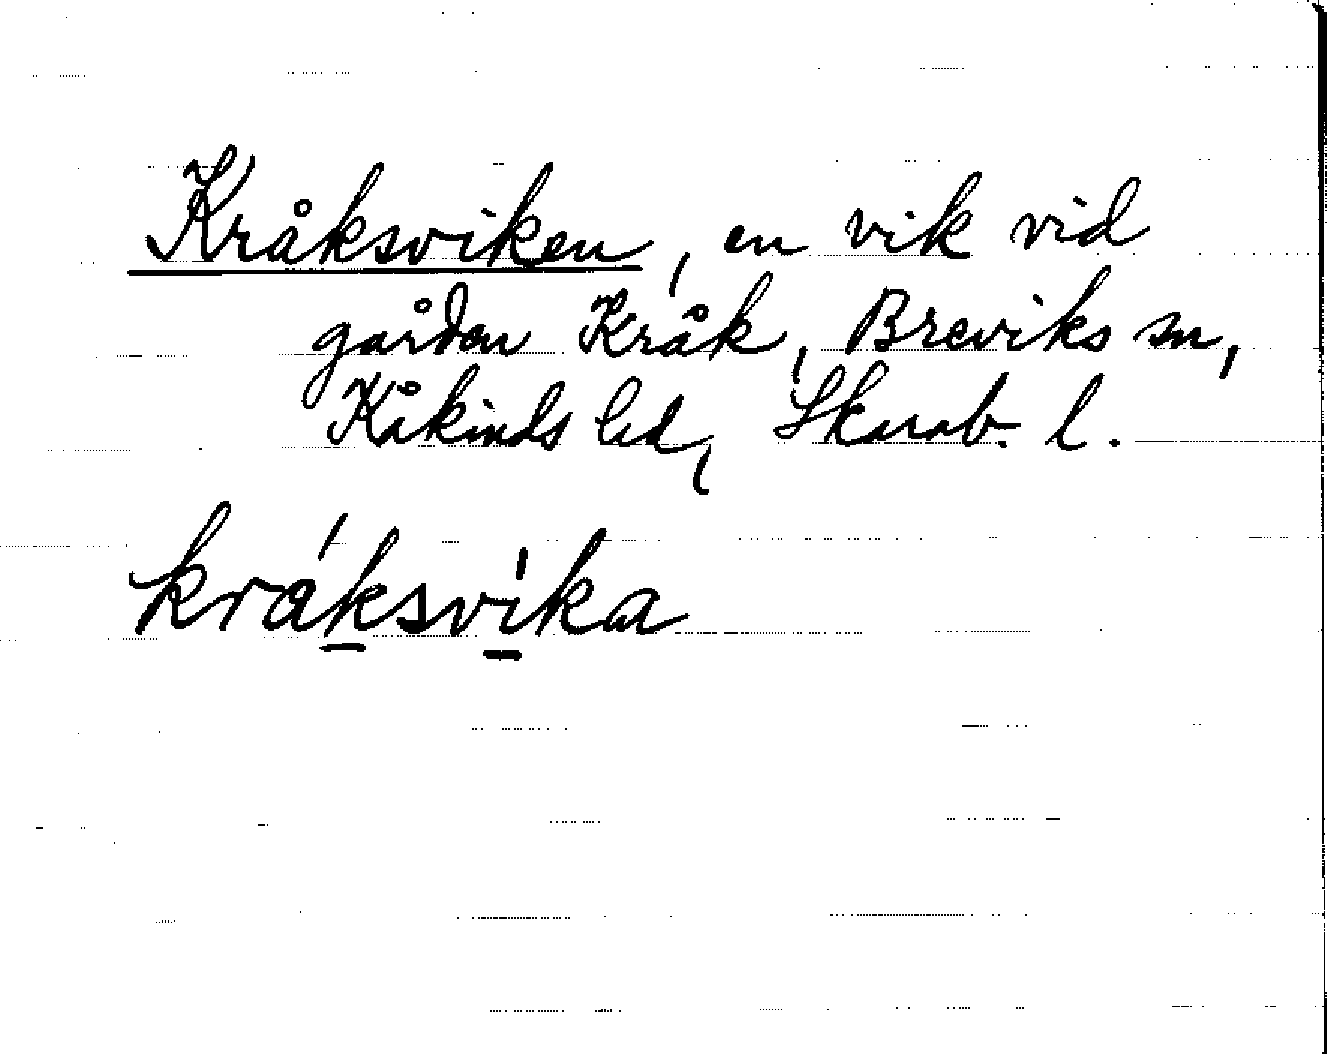 Kråksviken, en vik vid
gården Kråk, Breviks sn,
Kåkinds hd, Skarab. l.
kráksvíka